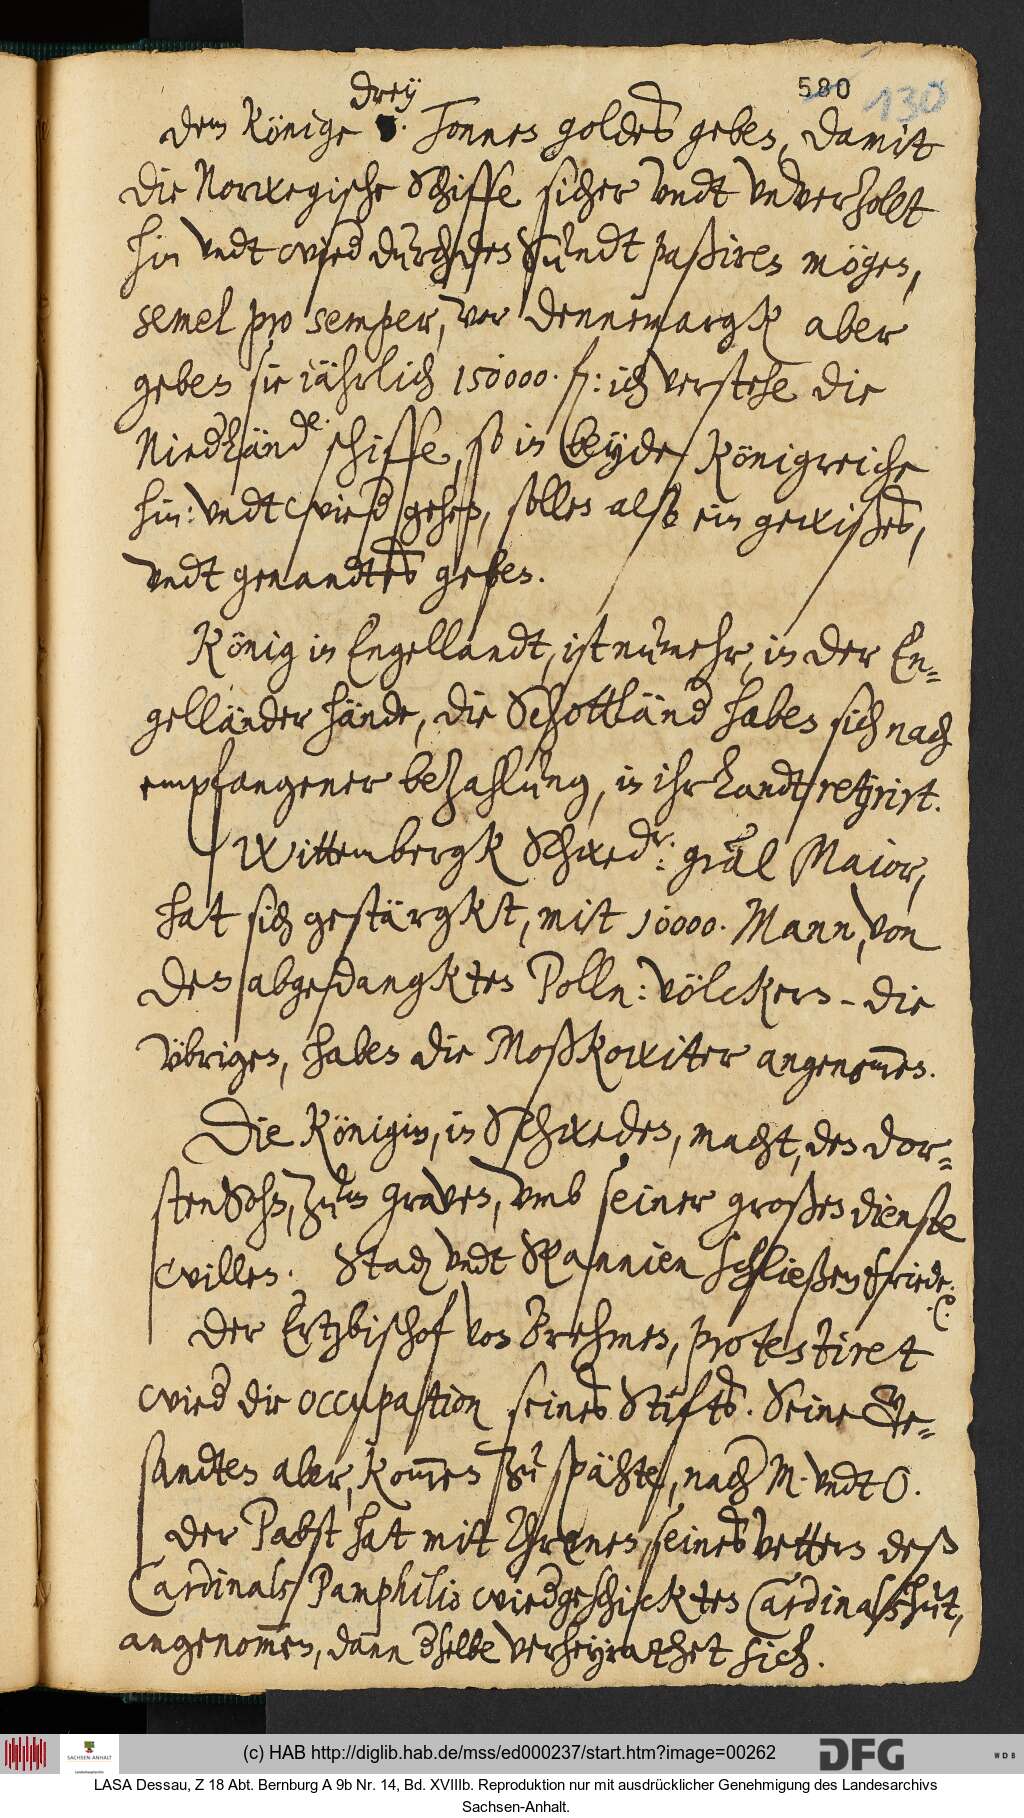 580 130
drey
dem Könige 3. Tonnen goldes geben, damit
die Norwegische Schiffe sicher vndt vnverhollt
hin vndt wied durch den Sundt paßiren mögen,
semel pro semper, vor Dennemargk aber
geben sie iährlich 150000. fl: ich verstehe die
Niedländ.e schiffe, so in beyde Königreiche
hin: vndt wied gehen, sollen also ein gewißes,
vndt genandtes geben.
König in Engellandt, ist nunmehr, in der En-
gelländer hände, die Schottländ haben sich nach
empfangener bezahlung, in ihr landt retirirt.
Wittembergk Schwed.r: gnãl Maior,
hat sich gestärgkt, mit 10000. Mann, von
den abgedangkten Polln: völckern - die
vbrigen, haben die Moßkowiter angenom̃en.
Die Königin, in Schweden, macht, den Dor-
stensohn, zum Graven, vmb seiner großen dienste
willen. Stadt vndt Spannien schließen friede.
Der Ertzbischof von Brehmen, protestiret
wied die occupation seines Stifts. Seine Ge-
sandten aber, kom̃en zu späht, nach M. vndt O.
Der Pabst hat mitt Threnen, seines vettern deß
Cardinals Pamphilio wiedgeschickten Cardinalshut,
angenom̃en, dann dselbe verheyrathet sich.
(c) HAB http://diglib.hab.de/mss/ed000237/start.htm?image=00262
SACHSEN-ANHALT
DFG
WDB
LASA Dessau, Z 18 Abt. Bernburg A 9b Nr. 14, Bd. XVIIIb. Reproduktion nur mit ausdrücklicher Genehmigung des Landesarchivs
Sachsen-Anhalt.